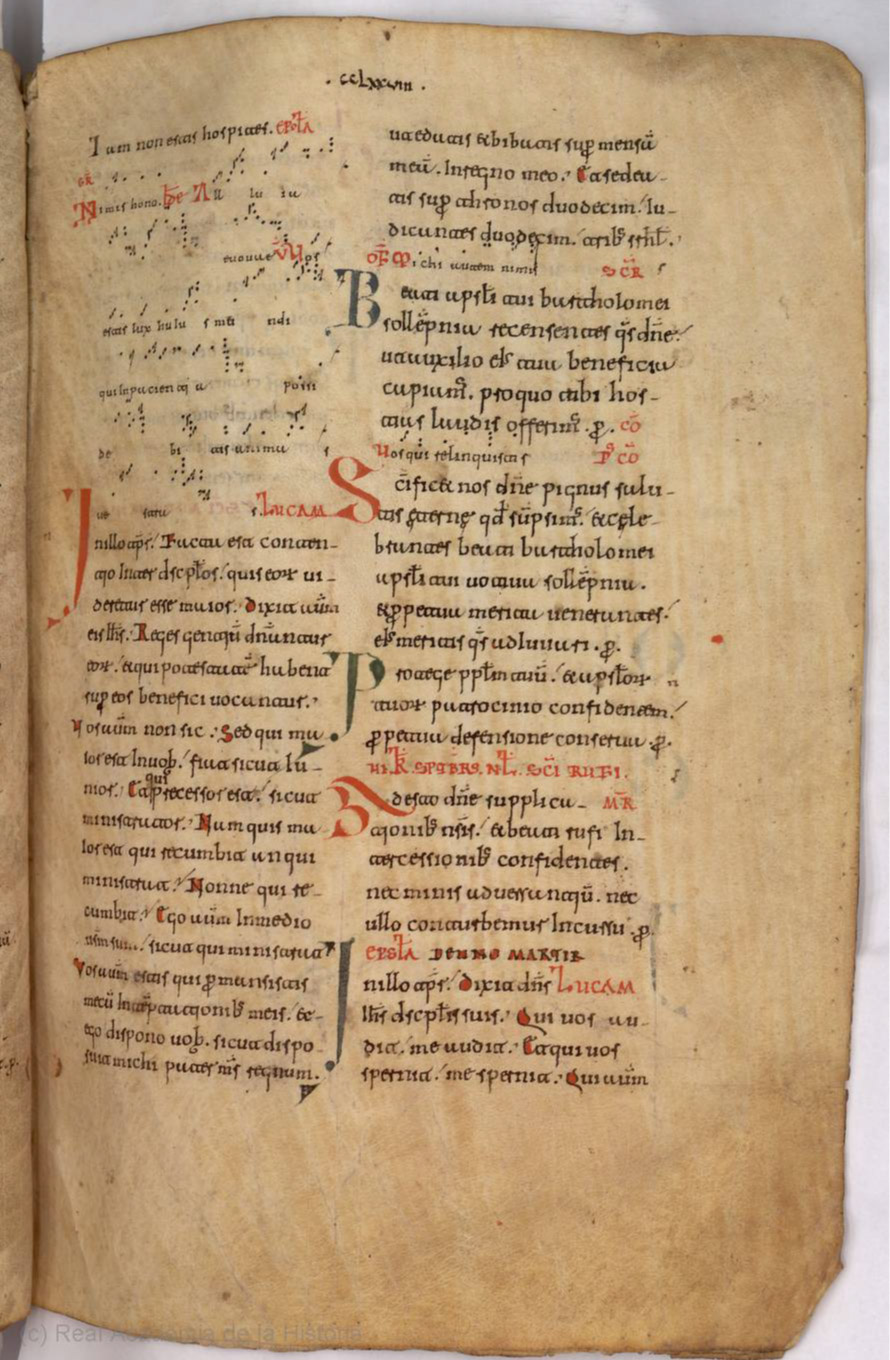 . cclxxviii .
Iam non estis hospites. epstła
G͞R
Nimis hono. Ꝟ All lu ia
euouae Ꝟ Vos
estis lux huiu s mun di
qui In pacientia u possi
de bi tis animas
ves tras s. LUCAM
In illo t͞ps. Facta est conten-
tio Inter discp̅los. quis eoꝝ ui-
deretur esse maior. Dixit aut̅m
eis ih̅s. Reges gentiū dn̅antur
eoꝝ. et qui potestatē habent
sup̱ eos benefici uocantur.
Vos aūm non sic. Sed qui ma
ior est In uob̅. fiat sicut Iu-
nior. Et qui p̱cessor est. sicut
ministrator. Nam quis ma
ior est qui recumbit an qui
ministrat. Nonne qui re-
cumbit. Ego aūm In medio
ur̅m sum. sicut qui ministrat
Vos aūm estis qui p̱mansistis
mecū In temptationib̅ meis. et
ego dispono uob̅. sicut dispo-
suit michi pater m̅s regnum.
ut edatis et bibatis sup̱ mensā
meā. In regno meo. Et sedea-
tis sup̱ thronos duodecim. Iu-
dicantes duodecim. trib̅ isr̅l.
OF̅ Michi autem nimis S͞CR
Beati apstl̅i tui bartholomei
sollēpnia recensentes q̅s dn̅e
ut auxilio ei̅ tua beneficia
capiam̅. pro quo tibi hos-
tias laudis offerim̅. p̱. c͞o
Vos qui reliquistis P͞ c͞o
Sc̅ificet nos dn̅e pignus salu-
tis eterne qd̅ sūpsim̅. et cele-
brantes beati bartholomei
apstl̅i tui uotiua sollēpnia.
et p̱petua merita uenerantes.
ei̅ meritis q̅s adiuuari. p̱.
Protege pp̅l̅m tuū. et apstl̅oꝝ
tuoꝝ patrocinio confidentem.
p̱petua defensione conserua. p̱.
VI. K̅. SPTBRS. NL̅. SC̅I RUFI. M͞R
Adesto dn̅e supplica-
tionib̅ nr̅is. et beati rufi In-
tercessionib̅ confidentes.
nec minis aduersantiū. nec
ullo conturbemur Incursu. p̱.
EPSTL̅A DE UNO MARTIR
In illo t͞ps. Dixit dn̅s LUCAM
ih̅s discp̅lis suis. Qui uos au-
dit. me audit. Et qui uos
spernit. me spernit. Qui aūm